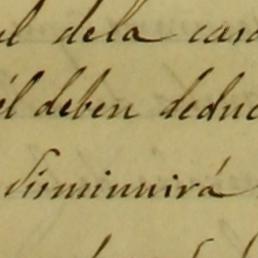 dela casa
él deben deduc
disminuirá